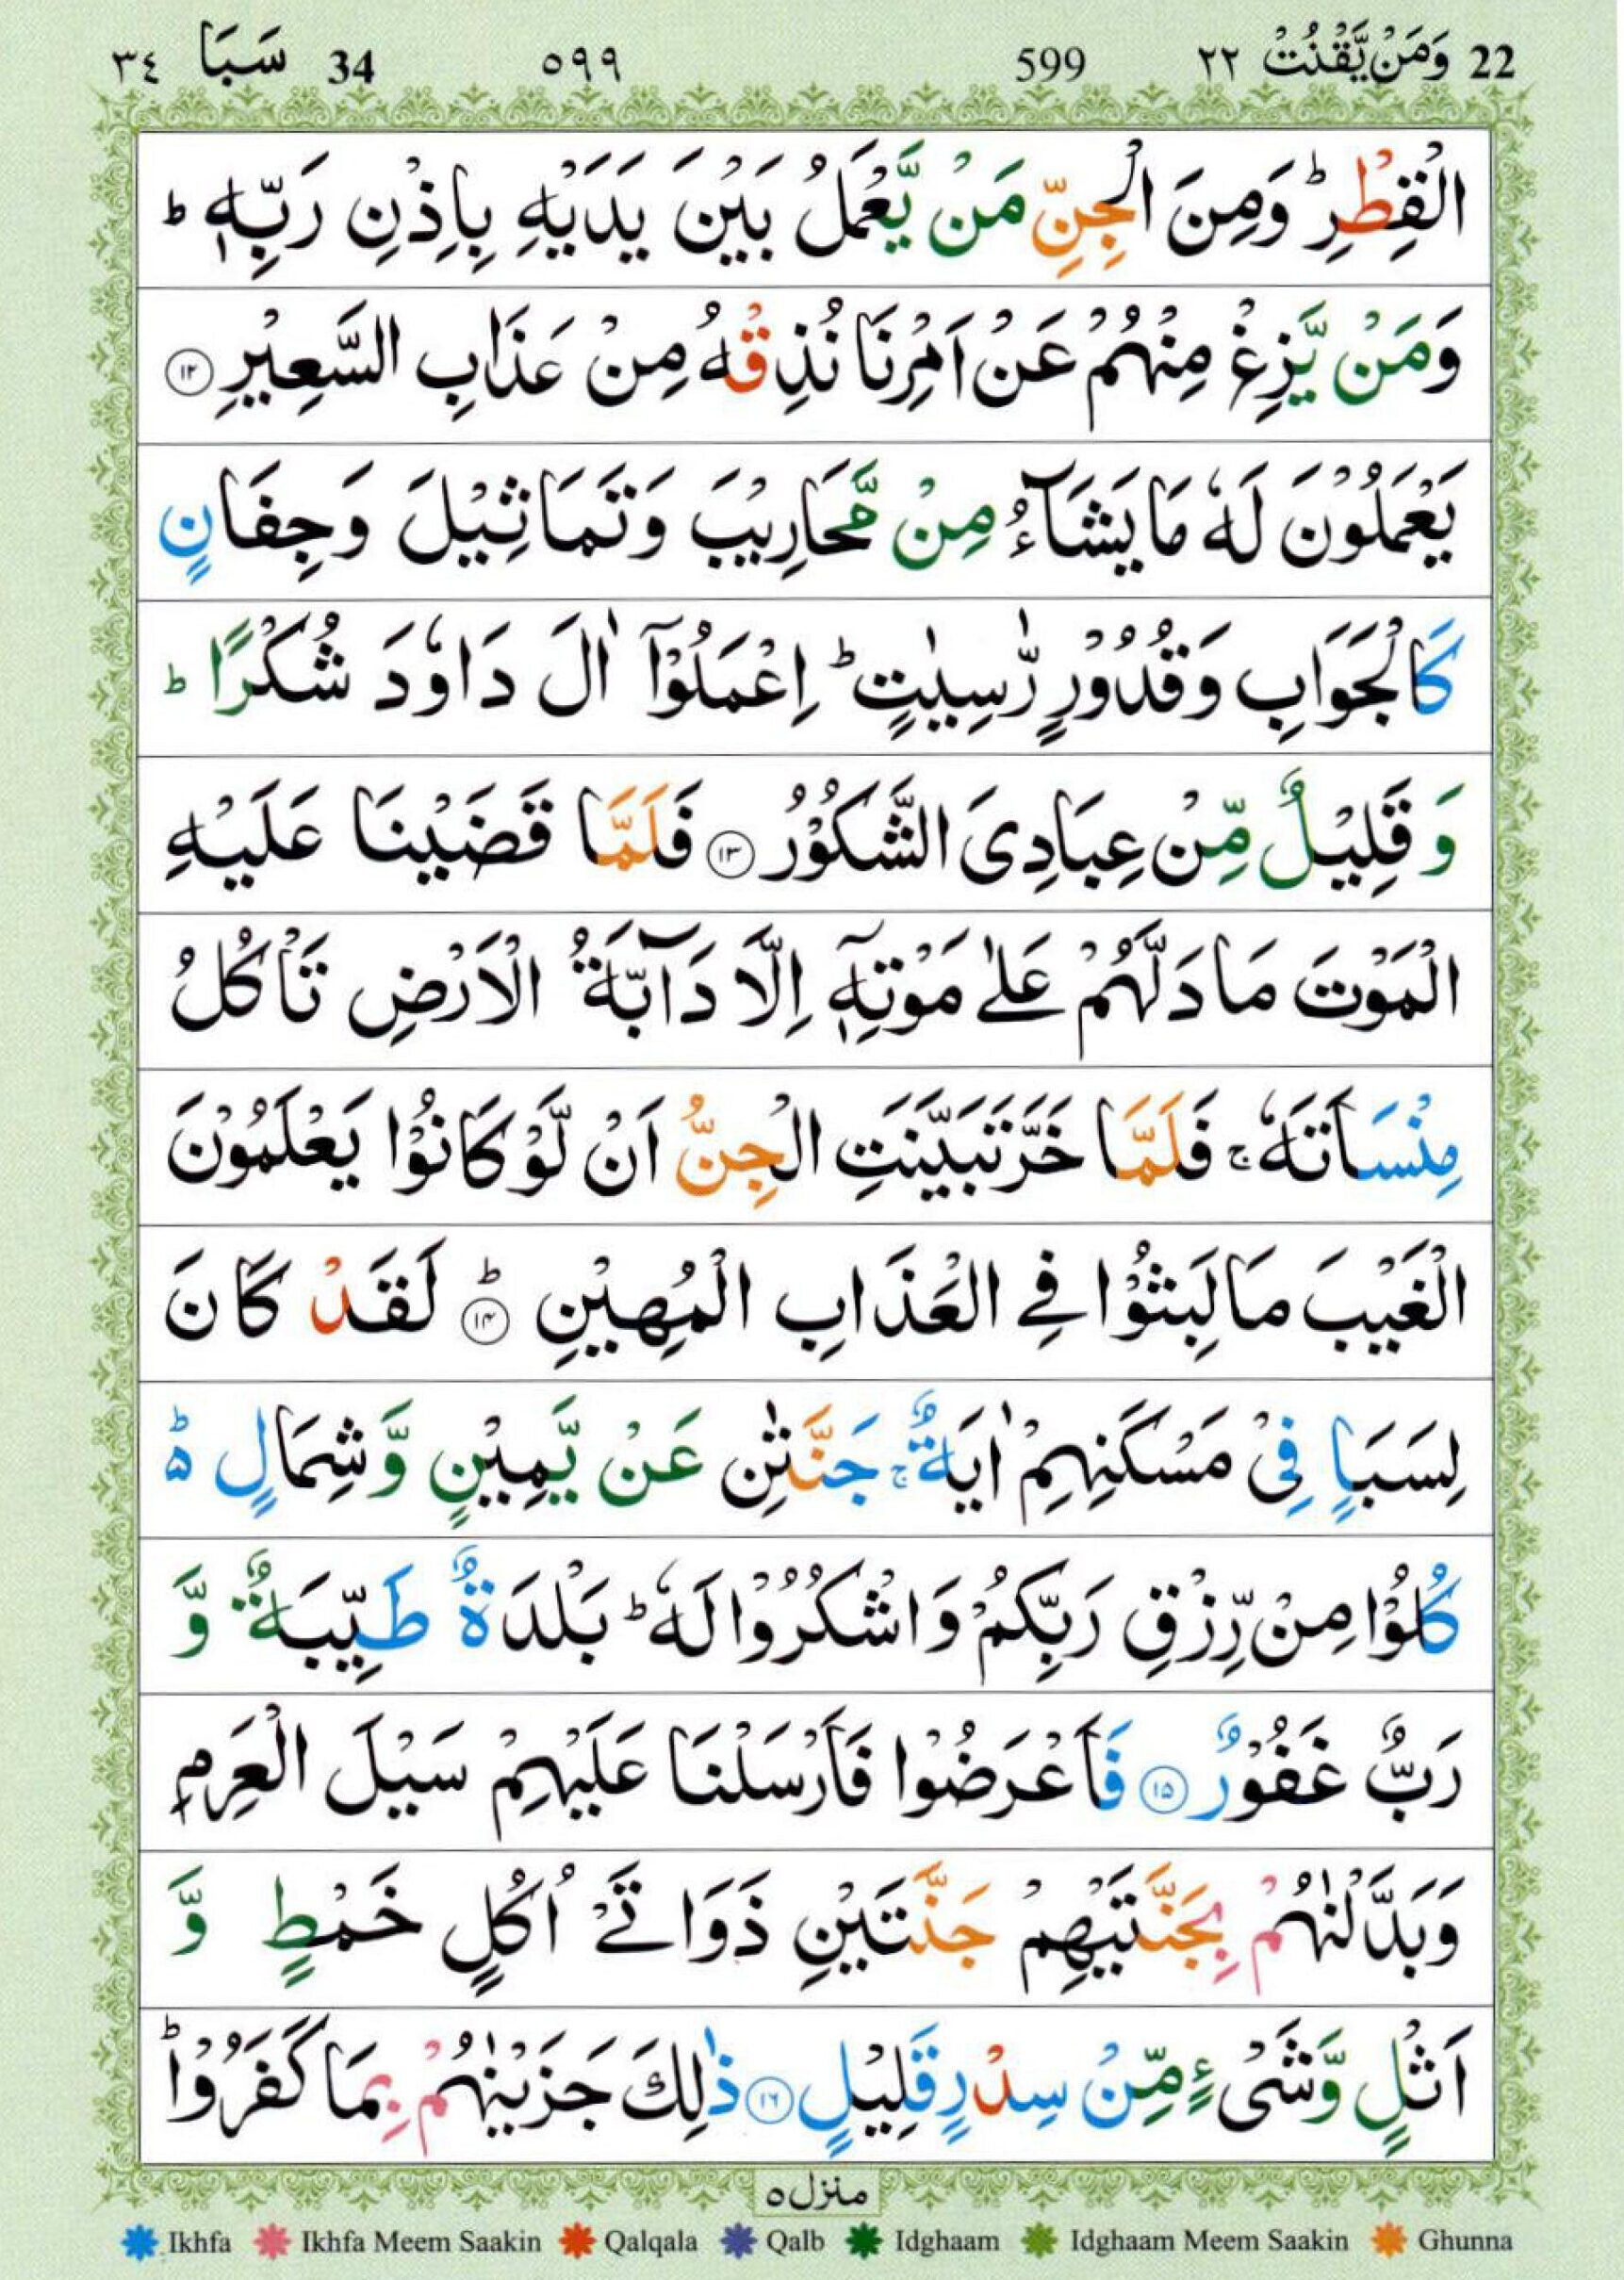 22 وَمَنْ يَّقْنُتْ ٢٢ 599 ٥٩٩ 34 سَبَا ٣٤
الْقِطْرِ ؕ وَمِنَ الْجِنِّ مَنْ يَّعْمَلُ بَيْنَ يَدَيْهِ بِاِذْنِ رَبِّهٖ ؕ
وَمَنْ يَّزِغْ مِنْهُمْ عَنْ اَمْرِنَا نُذِقْهُ مِنْ عَذَابِ السَّعِيْرِ ﴿۱۲﴾
يَعْمَلُوْنَ لَهٗ مَا يَشَآءُ مِنْ مَّحَارِيْبَ وَتَمَاثِيْلَ وَجِفَانٍ
كَالْجَوَابِ وَقُدُوْرٍ رّٰسِيٰتٍ ؕ اِعْمَلُوْٓا اٰلَ دَاوٗدَ شُكْرًا ؕ
وَقَلِيْلٌ مِّنْ عِبَادِيَ الشَّكُوْرُ ﴿۱۳﴾ فَلَمَّا قَضَيْنَا عَلَيْهِ
الْمَوْتَ مَا دَلَّهُمْ عَلٰى مَوْتِهٖٓ اِلَّا دَآبَّةُ الْاَرْضِ تَاْكُلُ
مِنْسَاَتَهٗ ۚ فَلَمَّا خَرَّ تَبَيَّنَتِ الْجِنُّ اَنْ لَّوْ كَانُوْا يَعْلَمُوْنَ
الْغَيْبَ مَا لَبِثُوْا فِي الْعَذَابِ الْمُهِيْنِ ؕ ﴿۱۴﴾ لَقَدْ كَانَ
لِسَبَاٍ فِيْ مَسْكَنِهِمْ اٰيَةٌ ۚ جَنَّتٰنِ عَنْ يَّمِيْنٍ وَّشِمَالٍ ۬ؕ
كُلُوْا مِنْ رِّزْقِ رَبِّكُمْ وَاشْكُرُوْا لَهٗ ؕ بَلْدَةٌ طَيِّبَةٌ وَّ
رَبٌّ غَفُوْرٌ ﴿۱۵﴾ فَاَعْرَضُوْا فَاَرْسَلْنَا عَلَيْهِمْ سَيْلَ الْعَرِمِ
وَبَدَّلْنٰهُمْ بِجَنَّتَيْهِمْ جَنَّتَيْنِ ذَوَاتَيْ اُكُلٍ خَمْطٍ وَّ
اَثْلٍ وَّشَيْءٍ مِّنْ سِدْرٍ قَلِيْلٍ ﴿۱۶﴾ ذٰلِكَ جَزَيْنٰهُمْ بِمَا كَفَرُوْا ؕ
منزل ٥
Ikhfa Ikhfa Meem Saakin Qalqala Qalb Idghaam Idghaam Meem Saakin Ghunna